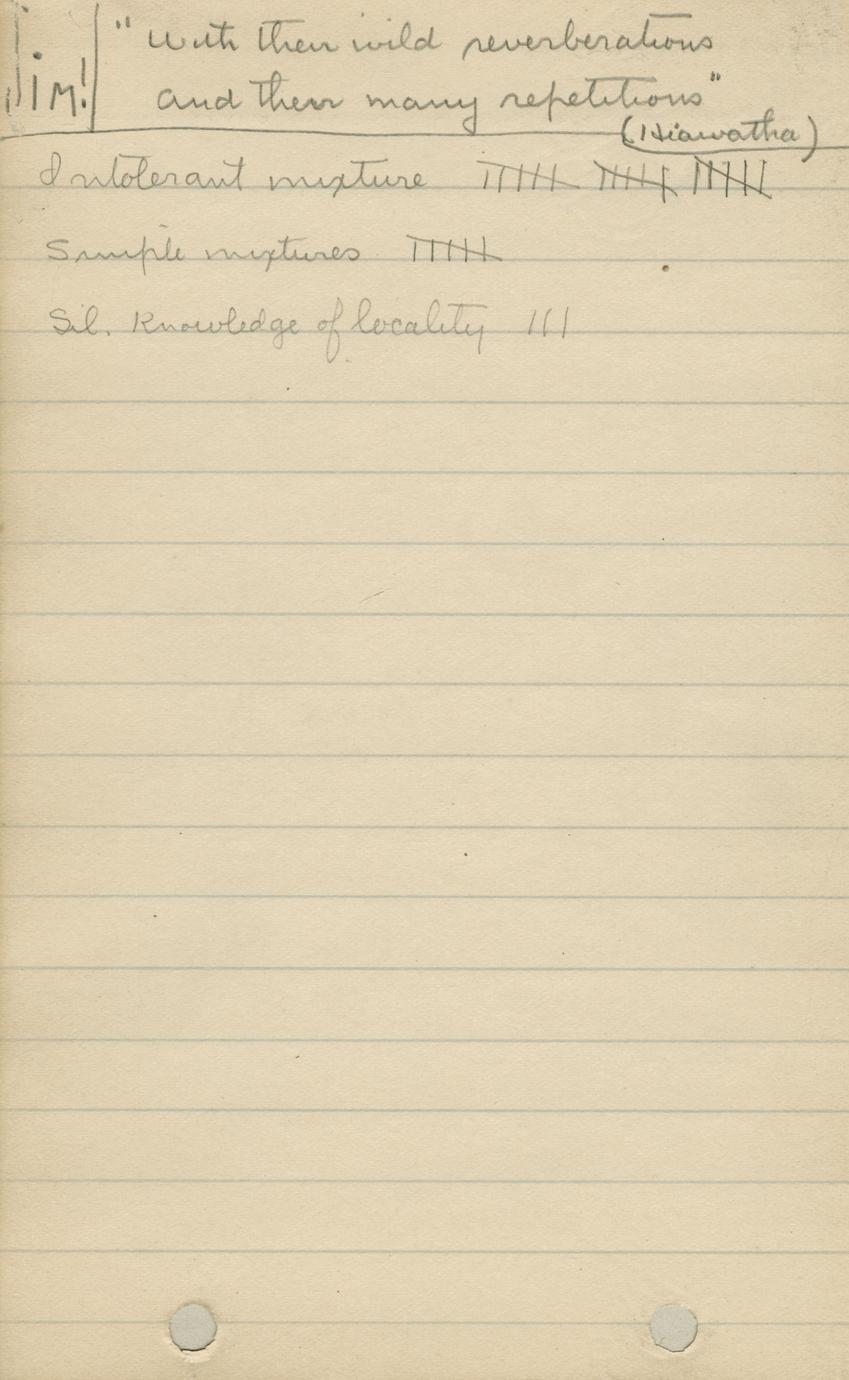 Jim!
"With their wild reverberations
and their many repetitions"
(Hiawatha)
Intolerant mixture
Simple mixtures
Sil. Knowledge of locality III